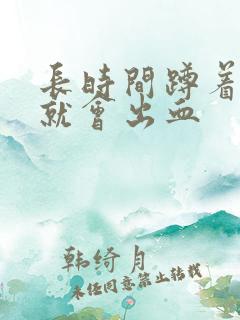 長時間蹲着
就會出血
韩绮月
未经同意禁止转载